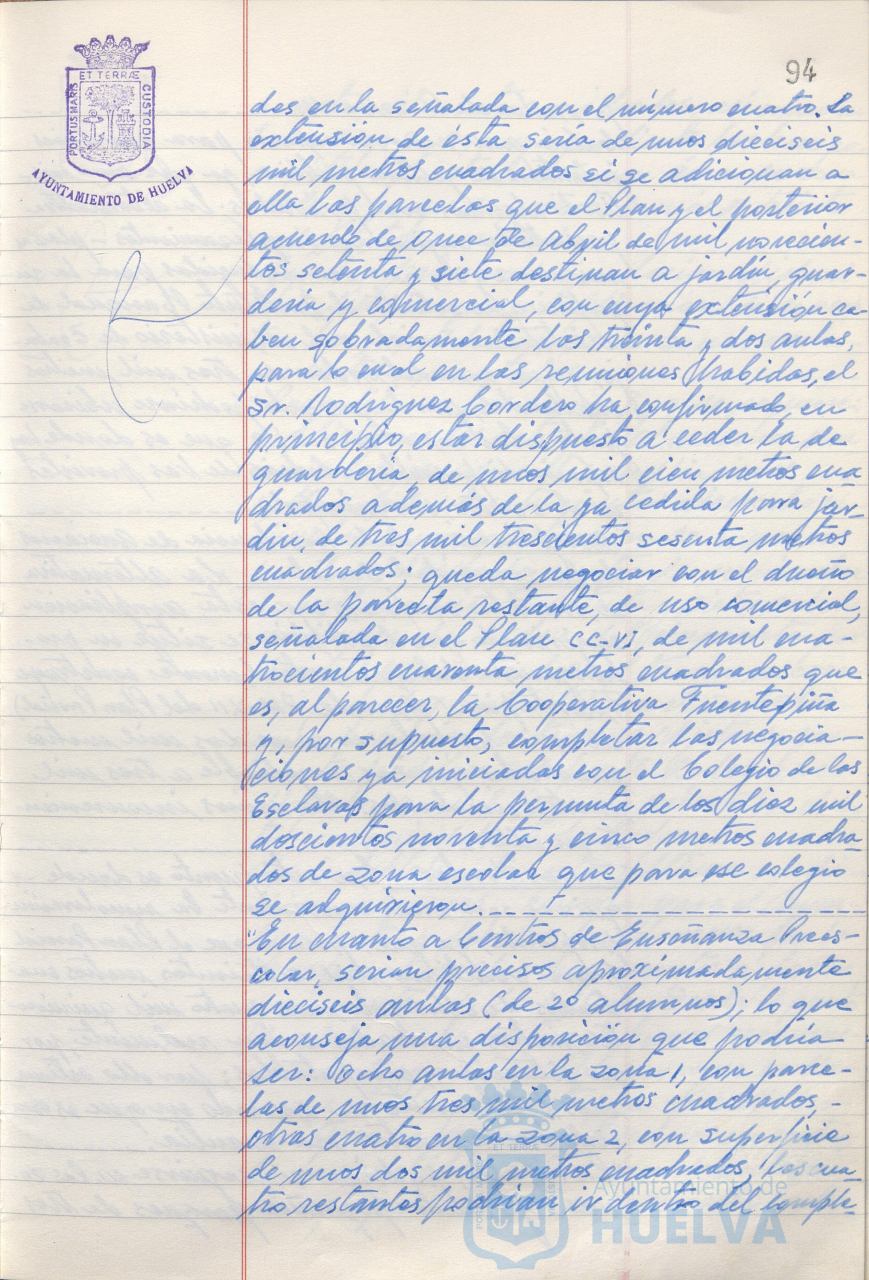 94
ET TERRÆ
PORTUS MARIS
CUSTODIA
AYUNTAMIENTO DE HUELVA
dos en la señalada con el número cuatro. La
extensión de ésta sería de unos dieciseis
mil metros cuadrados si se adicionan a
ella las parcelas que el Plan y el posterior
acuerdo de once de Abril de mil novecien-
tos setenta y siete destinan a jardín, guar-
dería y comercial, con cuya extensión ca-
ben sobradamente las treinta y dos aulas,
para lo cual en las reuniones habidas, el
Sr. Rodríguez Cordero ha confirmado, en
principio, estar dispuesto a ceder la de
guardería, de unos mil cien metros cua
drados además de la ya cedida para jar-
din, de tres mil trescientos sesenta metros
cuadrados; queda negociar con el dueño
de la parcela restante, de uso comercial,
señalada en el Plan CC-VI, de mil cua-
trocientos cuarenta metros cuadrados que
es, al parecer, la Cooperativa Fuentepiña
y, por supuesto, completar las negocia-
ciones ya iniciadas con el Colegio de las
Esclavas para la permuta de los diez mil
doscientos noventa y cinco metros cuadra-
dos de zona escolar que para ese colegio
se adquirieron.
"En cuanto a Centros de Enseñanza Prees-
colar, serían precisos aproximadamente
dieciseis aulas (de 20 alumnos); lo que
aconseja una disposición que podría
ser: Ocho aulas en la zona 1, con parce-
las de unos tres mil metros cuadrados, -
otras cuatro en la zona 2, con superficie
de unos dos mil metros cuadrados, las cua
tro restantes podrían ir dentro del comple-
Ayuntamiento de
HUELVA